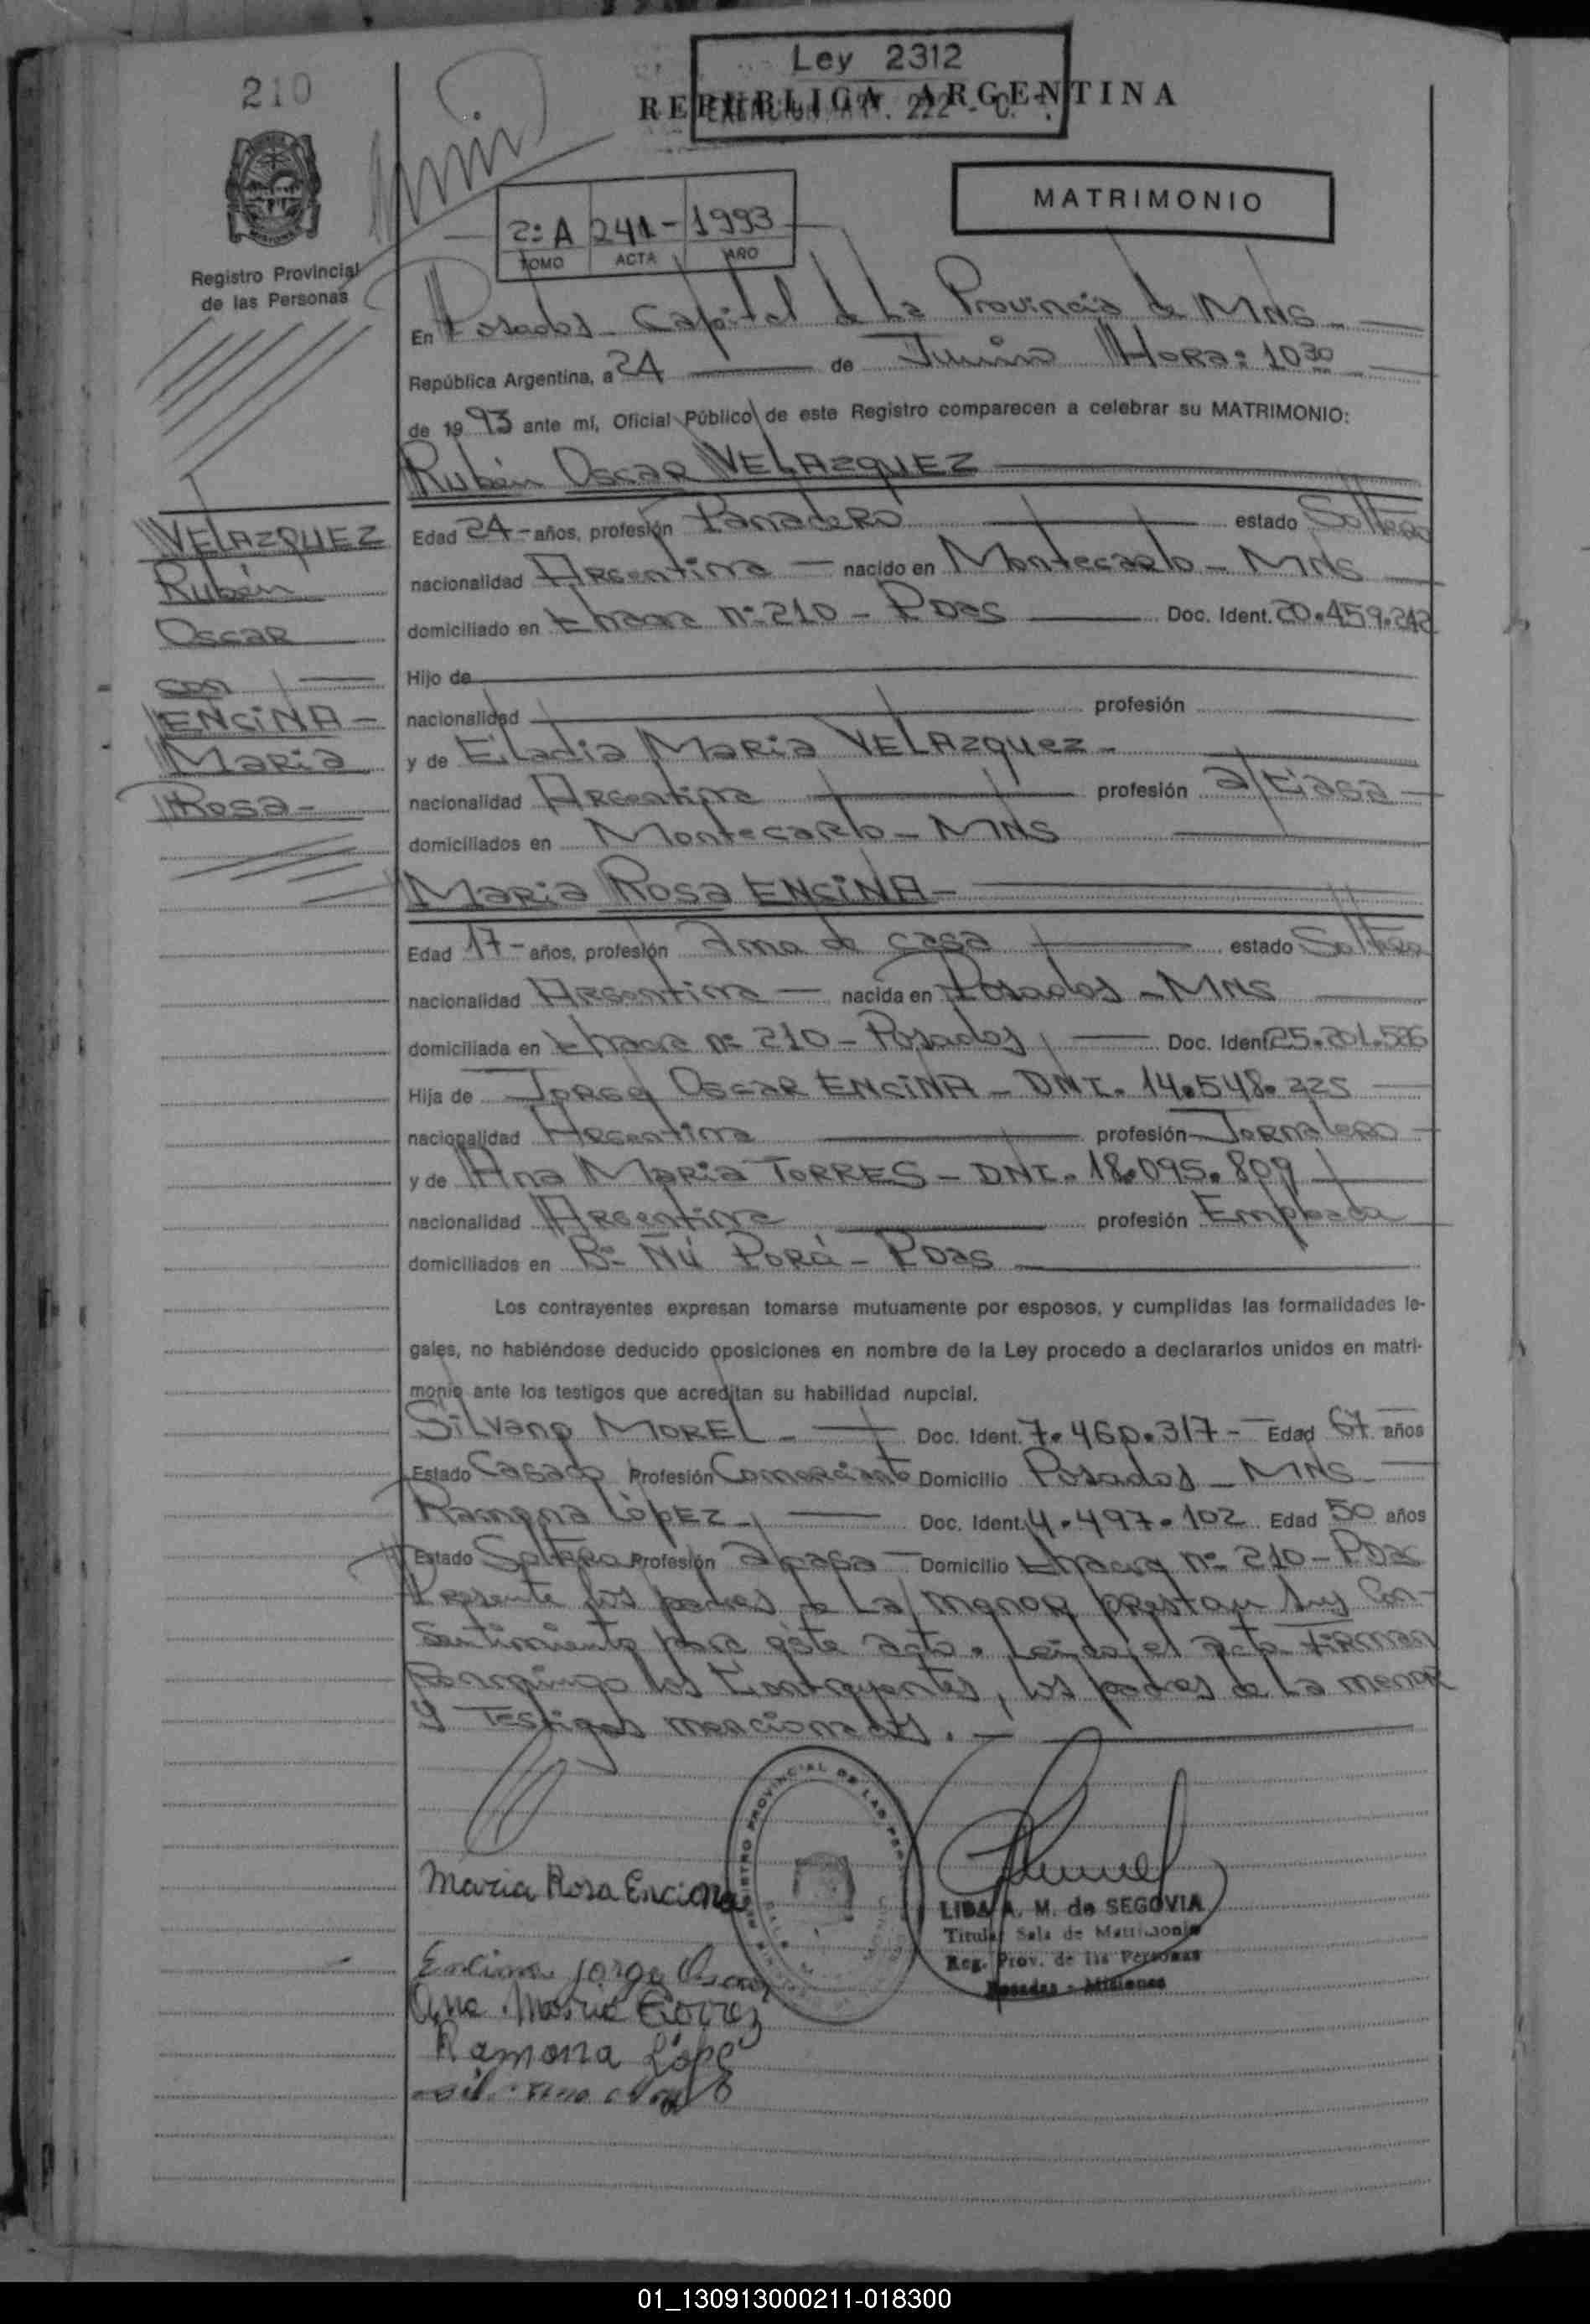 210
Ley 2312
REPUBLICA ARGENTINA
MATRIMONIO
2º A 241- 1993
TOMO ACTA AÑO
Registro Provincial
de las Personas
En Posadas - Capital de La Provincia de MNS -
República Argentina, a 24 de Junio Hora: 10 30
de 1993 ante mí, Oficial Público de este Registro comparecen a celebrar su MATRIMONIO:
Rubén Oscar VELAZQUEZ
VELAZQUEZ
Rubén
Oscar
con
ENCINA -
Maria
Rosa -
Edad 24 - años, profesión Panadero estado Soltero
nacionalidad Argentina - nacido en Montecarlo - MNS
domiciliado en Chacra Nº 210 - Pdas Doc. Ident. 20.459.242
Hijo de
nacionalidad profesión
y de Eladia Maria VELAZQUEZ -
nacionalidad Argentina profesión
domiciliados en Montecarlo - MNS
Maria Rosa ENCINA -
Edad 17 - años, profesión Ama de casa estado Soltera
nacionalidad Argentina - nacida en Posadas - MNS
domiciliada en Chacra nº 210 - Posadas Doc. Ident. 25.201.526
Hija de Jorge Oscar ENCINA - DNI. 14.548.225
nacionalidad Argentina profesión Jornalero
y de Ana Maria TORRES - DNI. 18.095.809
nacionalidad Argentina profesión Empleada
domiciliados en Bº Ñú Porá - Pdas
Los contrayentes expresan tomarse mutuamente por esposos, y cumplidas las formalidades le-
gales, no habiéndose deducido oposiciones en nombre de la Ley procedo a declararlos unidos en matri-
monio ante los testigos que acreditan su habilidad nupcial.
Silvano MOREL - Doc. Ident. 7.460.317 - Edad 67 años
Estado Casado Profesión Comerciante Domicilio Posadas - MNS
Ramona LópEZ - Doc. Ident. 4.497.102 Edad 50 años
Estado Soltera Profesión a/casa - Domicilio Chacra nº 210 - Pdas
Presente los padres de La menor prestan sus Con-
sentimiento para éste acto. Leída el acta Firman
Conmigo los Contrayentes, los padres de La menor
y Testigos mencionados. -
REGISTRO PROVINCIAL DE LAS PER
Maria Rosa Encina
LIDA A. M. de SEGOVIA
Titular Sala de Matrimonio
Reg. Prov. de las Personas
Posadas - Misiones
Encina Jorge Oscar
Ana Maria Torrez
Ramona Lópe
01_130913000211-018300